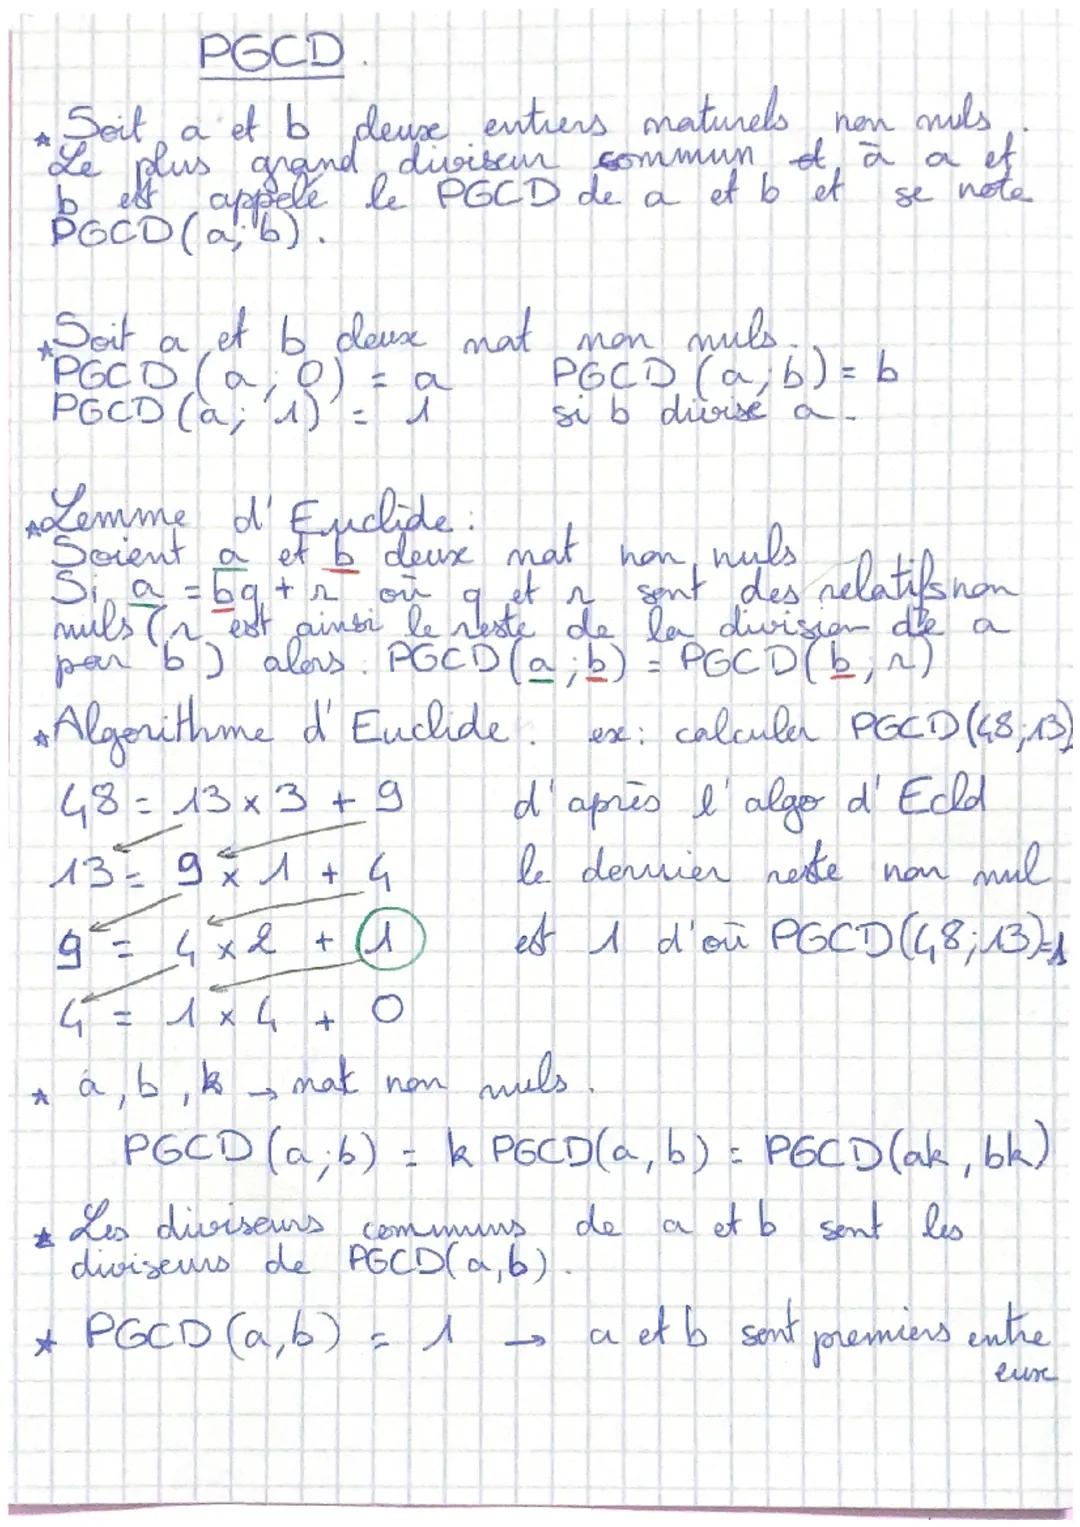 PGCD.
* Soit a et b deux entiers naturels non nuls.
Le plus grand diviseur commun à a et
b est appelé le PGCD de a et b et se note
PGCD(a;b).
* Soit a et b deux nat non nuls.
PGCD(a;0) = a PGCD(a;b) = b
PGCD(a;1) = 1 si b divise a.
* Lemme d'Euclide:
Soient a et b deux nat non nuls
Si a = bq + r où q et r sont des relatifs non
nuls (r est ainsi le reste de la division de a
par b) alors. PGCD(a;b) = PGCD(b;r)
* Algorithme d'Euclide. ex: calculer PGCD(48;13)
48 = 13 x 3 + 9 d'après l'algo d'Ecld
13 = 9 x 1 + 4 le dernier reste non nul
9 = 4 x 2 + 1 est 1 d'où PGCD(48;13)=1
4 = 1 x 4 + 0
* a, b, k → nat non nuls.
PGCD(a;b) = k PGCD(a,b) = PGCD(ak, bk)
* Les diviseurs communs de a et b sont les
diviseurs de PGCD(a,b).
* PGCD(a,b) = 1 → a et b sont premiers entre
eux